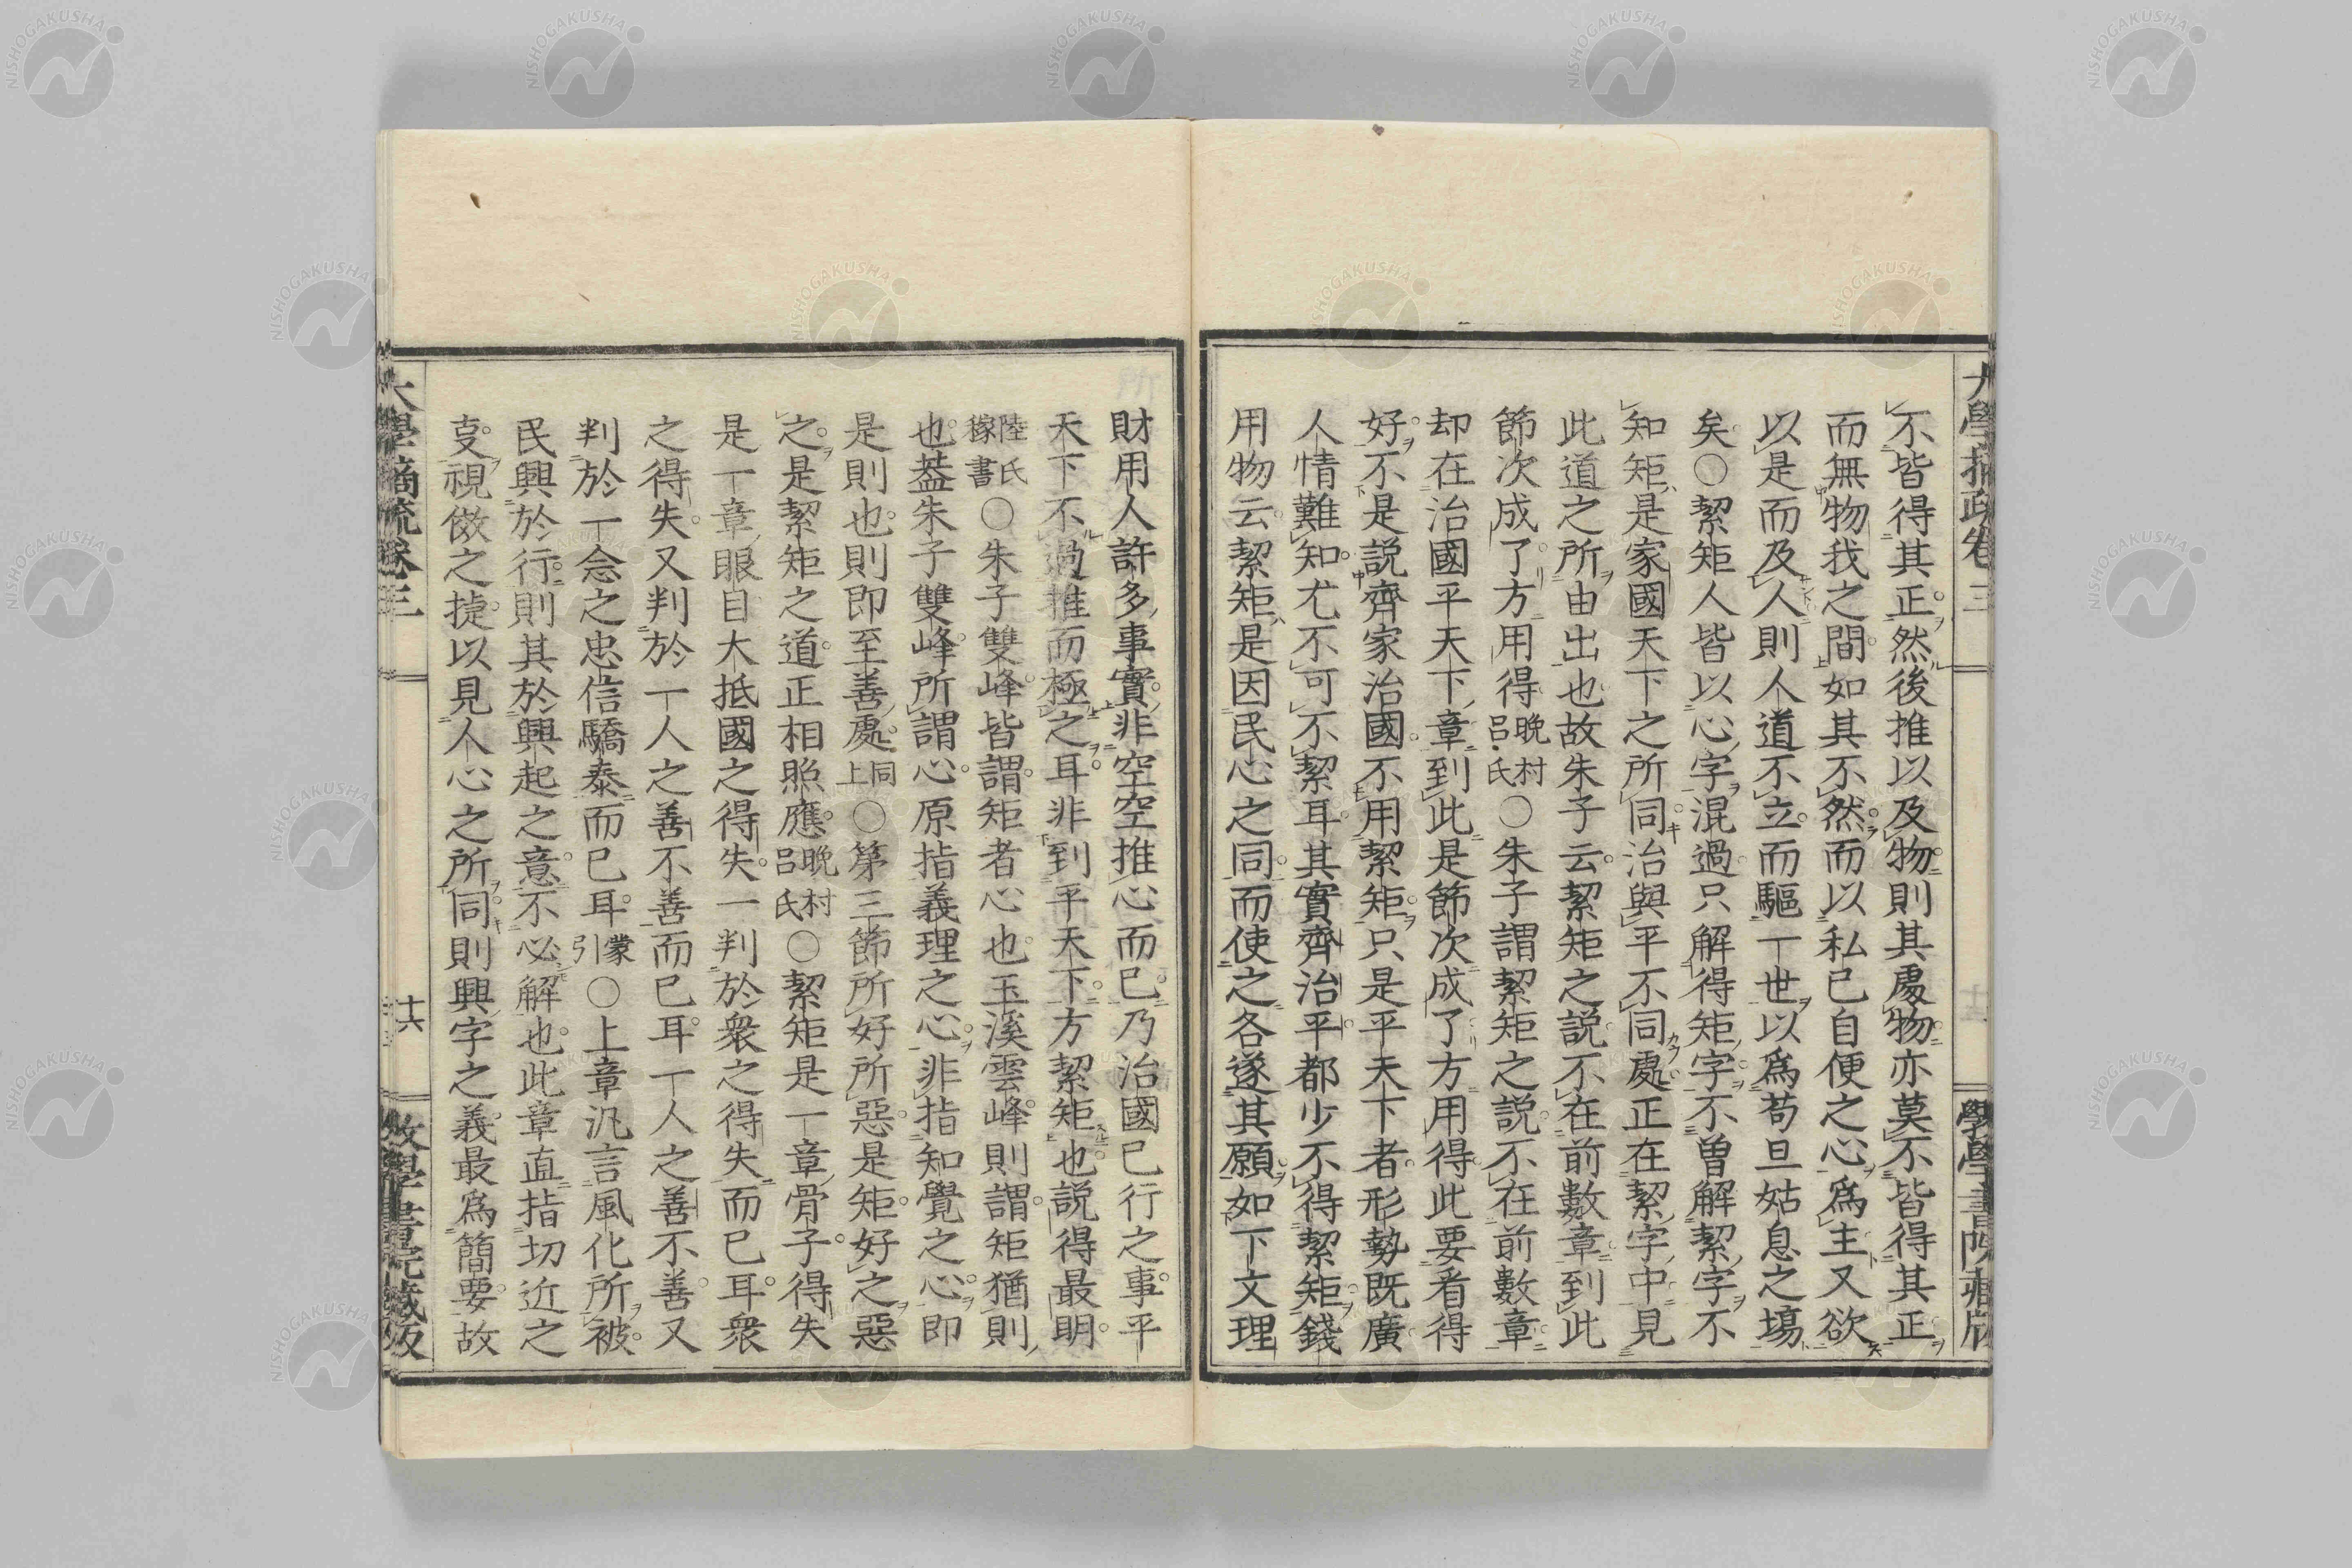 不皆得其正然後推以及物則其處物亦莫不皆得其正
而無物我之間如其不然而以私己自便之心爲主又欲
以是而及人則人道不立而驅一世以爲苟且姑息之場
矣○絜矩人皆以心字混過只解得矩字不曾解絜字不
知矩是家國天下之所同治與平不同處正在絜字中見
此道之所由出也故朱子云絜矩之説不在前數章到此
節次成了方用得晩村呂氏○朱子謂絜矩之説不在前數章
却在治國平天下章到此是節次成了方用得此要看得
好不是説齊家治國不用絜矩只是平天下者形勢既廣
人情難知尤不可不絜耳其實齊治平都少不得絜矩錢
用物云絜矩是因民心之同而使之各遂其願如下文理
財用人許多事實非空空推心而已乃治國已行之事平
天下不過推而極之耳非到平天下方絜矩也説得最明
陸氏稼書○朱子雙峰皆謂矩者心也玉溪雲峰則謂矩猶則
也葢朱子雙峰所謂心原指義理之心非指知覺之心即
是則也則即至善處同上○第三節所好所惡是矩好之惡
之是絜矩之道正相照應晩村呂氏○絜矩是一章骨子得失
是一章眼目大抵國之得失一判於衆之得失而已耳衆
之得失又判於一人之善不善而已耳一人之善不善又
判於一念之忠信驕泰而已耳蒙引○上章汎言風化所被
民興於行則其於興起之意不必解也此章直指切近之
叓視傚之捷以見人心之所同則興字之義最爲簡要故
大學摘疏卷三
十六
敎學書院藏版
NISHOGAKUSHA